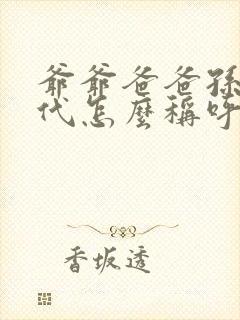 爺爺爸爸孫
代怎麼稱呼
香坂透